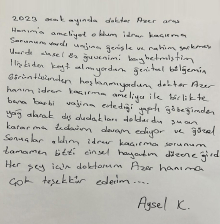 2023 ocak ayında doktor Azer aras
Hanıma ameliyat oldum idrar kaçırma
Sorunum vardı vajina genişle ve rahim sarkması
Vardı cinsel öz güvenimi kaybetmiştim
İlişkiden keyf almıyordum genital bölgemin
görüntüsünden hoşlanmıyordum doktor Azer
hanım idrar kaçırma ameliyatı ile birlikte
bana barbi vajina eşliğinde yaptı göbeğimden
yağ alarak dış dudakları doldurdu şu an
kararma tedavim devam ediyor ve güzel
Sonuçlar aldım idrar kaçırma sorunum
tamamen bitti cinsel hayatım düzene girdi
Her şey için doktorum Azer hanıma
çok teşekkür ederim....
Aysel K.